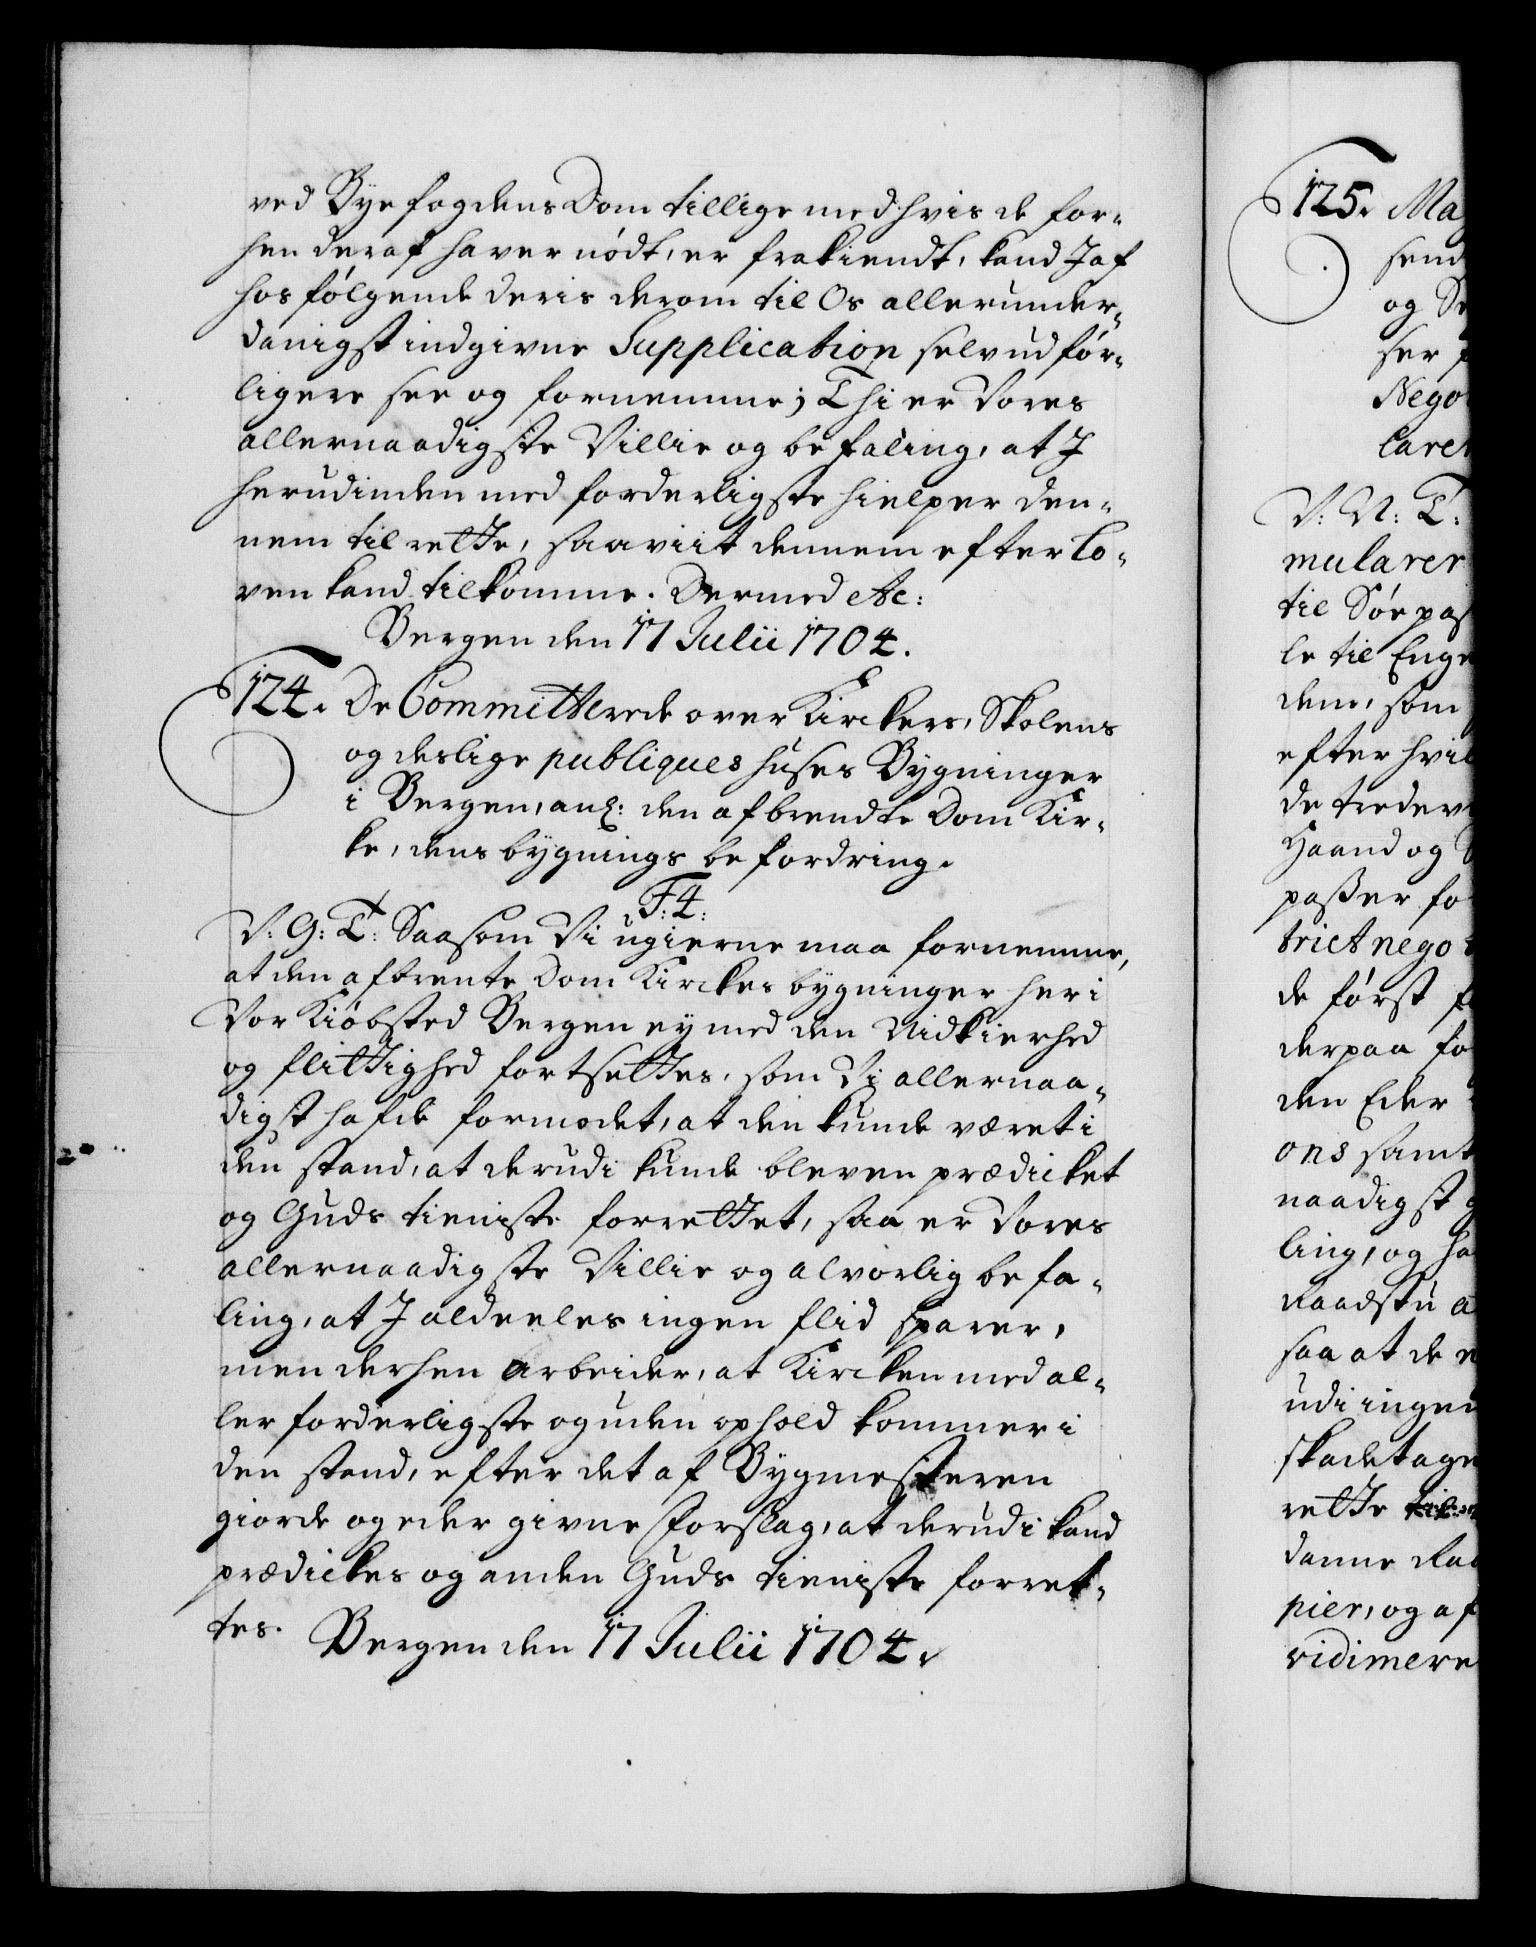 ved Byefogdens Dom tillige med hvis de for-
hen deraf haver nödt, er frakiendt, kand I af
hosfølgende deris derom til Os allerunder-
danigst indgivne Supplication selv udfør-
ligere see og fornemme; Thi er Vores
allernaadigste Villie og befaling, at I
herudinden med forderligste hielper den-
nem til rette, saavit dennem efter Lo-
ven kand tilkomme. Dermed etc:
Bergen den 17 Julii 1704.
124. De Committerede over Kirckers, Skolens
og deslige publiques huses Bygninger
i Bergen, anl: den afbrendte Dom Kir-
ke, dens bygnings befordring.
F: 4:
V: G: T: Saasom Vi ugierne maa fornemme,
at den afbrente Dom Kirckes bygninger her i
Vor Kiøbsted Bergen ey med den Nidkierhed
og flittighed fortsettes, som Vi allernaa-
digst hafde formodet, at den kunde været i
den stand, at derudi kunde bleven prædicket
og Guds tieniste forrettet, saa er Vores
allernaadigste Villie og alvorlig befa-
ling, at I aldeeles ingen flid sparer,
men derhen arbeider, at Kircken med al-
ler forderligste og uden ophold kommer i
den stand, efter det af Bygmesteren
giorde og eder givne forslag, at derudi kand
prædickes og anden Guds tieniste forret-
tes.
Bergen den 17 Julii 1704.
125. Ma
send
og Se
ser
Nego
Laren
V: N: T:
mularer
til Söe pas
le til Enge
dem, som
efter hvil
de treden
Haand og
passer fo
trict nego
de først
derpaa fo
den Eder
ons samt
naadigst
ling, og ha
Raadstu
saa at de
udi ingen
skadetage
rette
danne Raa
pier, og af
vidimere